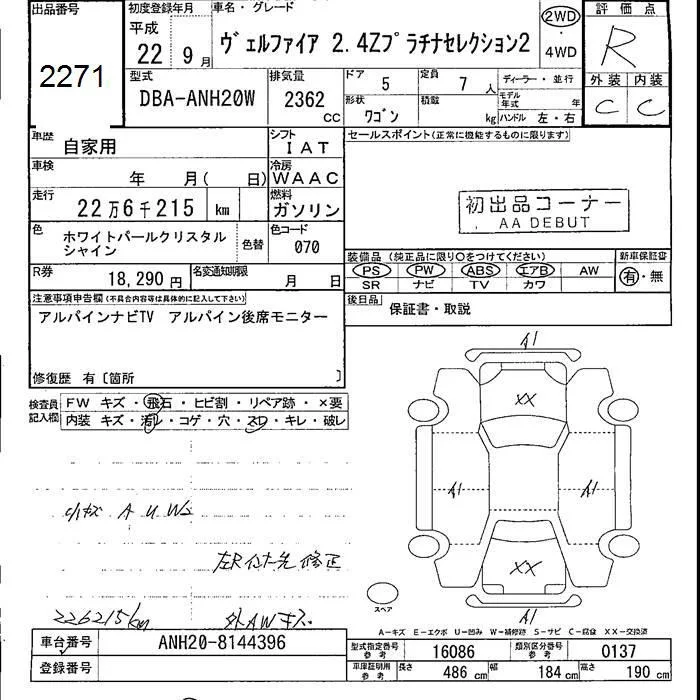 出品番号 初度登録年月 車名・グレード 評価点
平成
22 9月 ヴェルファイア 2.4Zプラチナセレクション2 2WD・4WD R
2271
型式 排気量 ドア 定員 ディーラー・並行 外装 内装
DBA-ANH20W 2362 cc 5 7人 モデル年式 年 C C
形状 積載
ワゴン kg ハンドル 左・右
車歴 自家用 シフト IAT セールスポイント(正常に機能するものに限ります)
車検 年 月( 日) 冷房 WAAC
走行 22万6千215 km 燃料 ガソリン
初出品コーナー
AA DEBUT
色 ホワイトパールクリスタルシャイン 色替 色コード 070
装備品(純正品に限り○をつけてください) 新車保証書
PS PW ABS エアB AW 有・無
SR ナビ TV カワ
R券 18,290円 名変通知期限 月 日
後日品 保証書・取説
注意事項申告欄(不具合内容等は具体的に記入して下さい)
アルパインナビTV アルパイン後席モニター
修復歴 有〔箇所 〕
検査員記入欄 FW キズ・飛石・ヒビ割・リペア跡・×要
内装 キズ・汚レ・コゲ・穴・スレ・キレ・破レ
A1
XX
A1 A1
XX
A1
小キズ A U W2
左Rインナー先 修正
226215km 外AWキズ
スペア
A-キズ E-エクボ U-凹み W-補修跡 S-サビ C-腐食 XX-交換済
車台番号 ANH20-8144396 型式指定番号 参考 16086 類別区分番号 参考 0137
登録番号 車庫証明用 参考 長さ 486 cm 幅 184 cm 高さ 190 cm